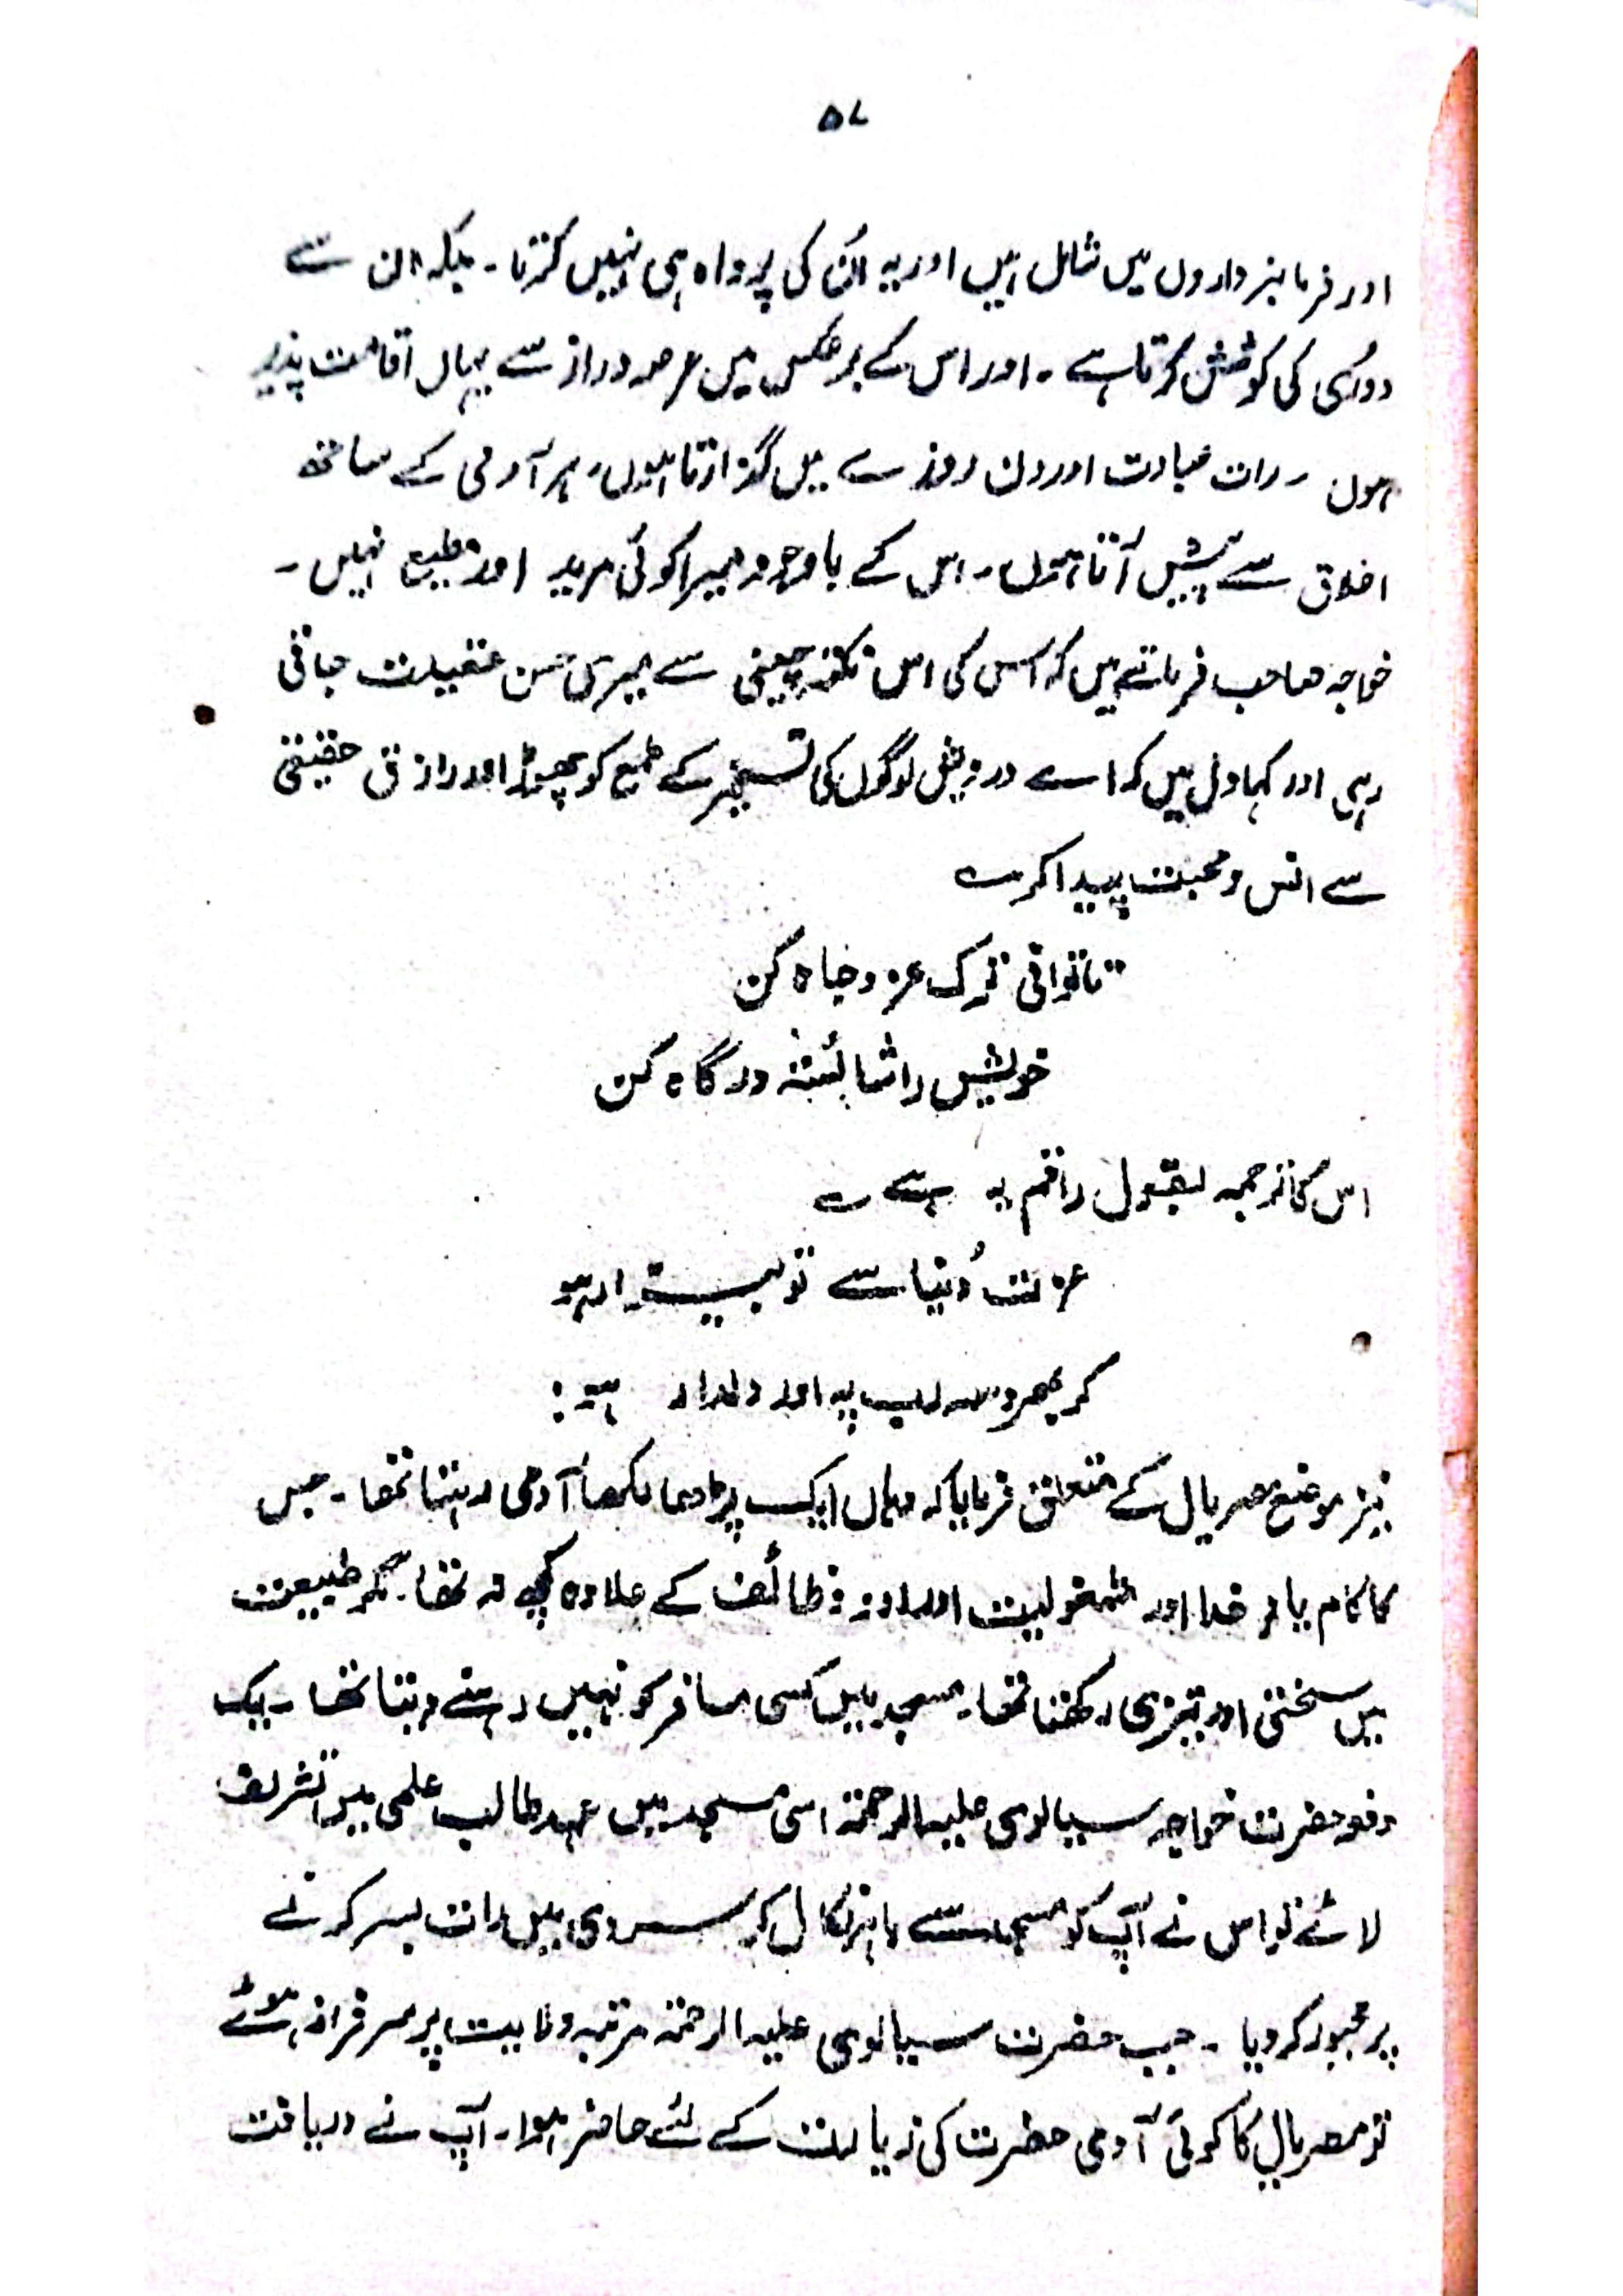 ۵۷
اور فرمانبرداروں میں شامل ہیں اور یہ اُن کی پرواہ ہی نہیں کرتا ۔ بلکہ ان سے
دوری کی کوشش کرتا ہے ۔ اور اس کے برعکس میں عرصہ دراز سے یہاں اقامت پذیر
ہوں ۔ رات عبادت اور دن روزے میں گذارتا ہوں، ہر آدمی کے ساتھ
اخلاق سے پیش آتا ہوں ۔ اس کے باوجود میرا کوئی مرید اور مطیع نہیں ۔
خواجہ صاحب فرماتے ہیں کہ اس کی اس نکتہ چینی سے میری حسن عقیدت جاتی
رہی اور کہا دل میں کہ اے درویش لوگوں کی تسخیر کے طمع کو چھوڑ اور رازق حقیقی
سے انس و محبت پیدا کر ے
تاتوانی ترک عز و جاہ کن
خویش را شائستہ درگاہ کن
اس کا ترجمہ بقول راقم یہ ہے ے
عزت دُنیا سے تو بیزار ہو
کر بھروسہ رب پہ اور دلدار ہو :
نیز موضع مصریال کے متعلق فرمایا کہ وہاں ایک پڑھا لکھا آدمی رہتا تھا ۔ جس
کا کام یادِ خدا اور مشغولیت اوراد و وظائف کے علاوہ کچھ نہ تھا ۔ مگر طبیعت
میں سختی اور تیزی رکھتا تھا ۔ مسجد میں کسی مسافر کو نہیں رہنے دیتا تھا ۔ یک
دفعہ حضرت خواجہ سیالوی علیہ الرحمۃ اسی مسجد میں عہد طالب علمی میں تشریف
لائے تو اس نے آپ کو مسجد سے باہر نکال کر سردی میں رات بسر کرنے
پر مجبور کر دیا ۔ جب حضرت سیالوی علیہ الرحمۃ مرتبہ ولایت پر سرفراز ہوئے
تو مصریال کا کوئی آدمی حضرت کی زیارت کے لئے حاضر ہوا ۔ آپ نے دریافت